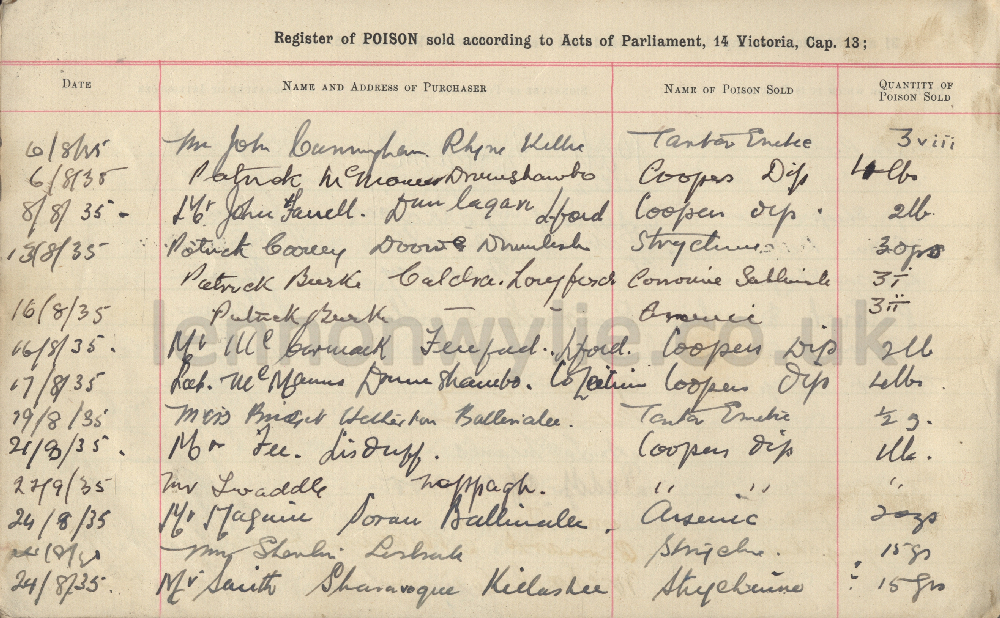 Register of POISON sold according to Acts of Parliament, 14 Victoria, Cap. 13;
DATE NAME AND ADDRESS OF PURCHASER NAME OF POISON SOLD QUANTITY OF POISON SOLD
6/8/35 Mr John Cunningham Rhyne Killoe Tartar Emetic ʒviii
6/8/35 Patrick McManus Drumshambo Coopers Dip 4 lbs
8/8/35 - Mr John Farrell. Lford Coopers dip. 2lb
13/8/35 Patrick Cooney Drumlish Strychnine 30grs
Patrick Burke Longford Corrosive Sublimate ʒi
16/8/35 Patrick Burk — — Arsenic ʒii
16/8/35. Mr McCormack Lford. Coopers Dip 2lb
17/8/35 McManus Drumshambo. Co Leitrim Coopers Dip 4lbs
19/8/35 Miss Bridget Ballinalee. Tartar Emetic ½ g.
21/8/35. Mr Fee. Lisduff. Coopers dip 1lb.
22/9/35 Mr Twaddle nappagh. " " "
24/8/35 Mr Maguire Soran Ballinalee. Arsenic
Strychn. 15gs
24/8/35. Mr Smith Shanavogue Killashee Strychnine 15grs
lennonwylie.co.uk